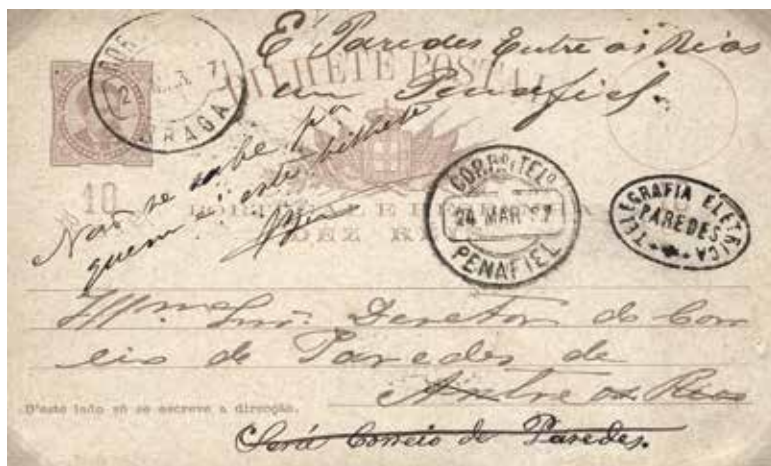 É Paredes Entre os Rios
em Penafiel.
BILHETE POSTAL
BRAGA
10
Não se sabe pª
quem é este bilhete
PORTUGAL E HESPANHA
DEZ RÉIS
CORRº E TELº
24 MAR 97
PENAFIEL
TELEGRAFIA ELETRICA
PAREDES
Illmo Snr. Deretor do Cor
reio de Paredes de
Antre os Rios
D'este lado só se escreve a direcção.
Será Correio de Paredes.